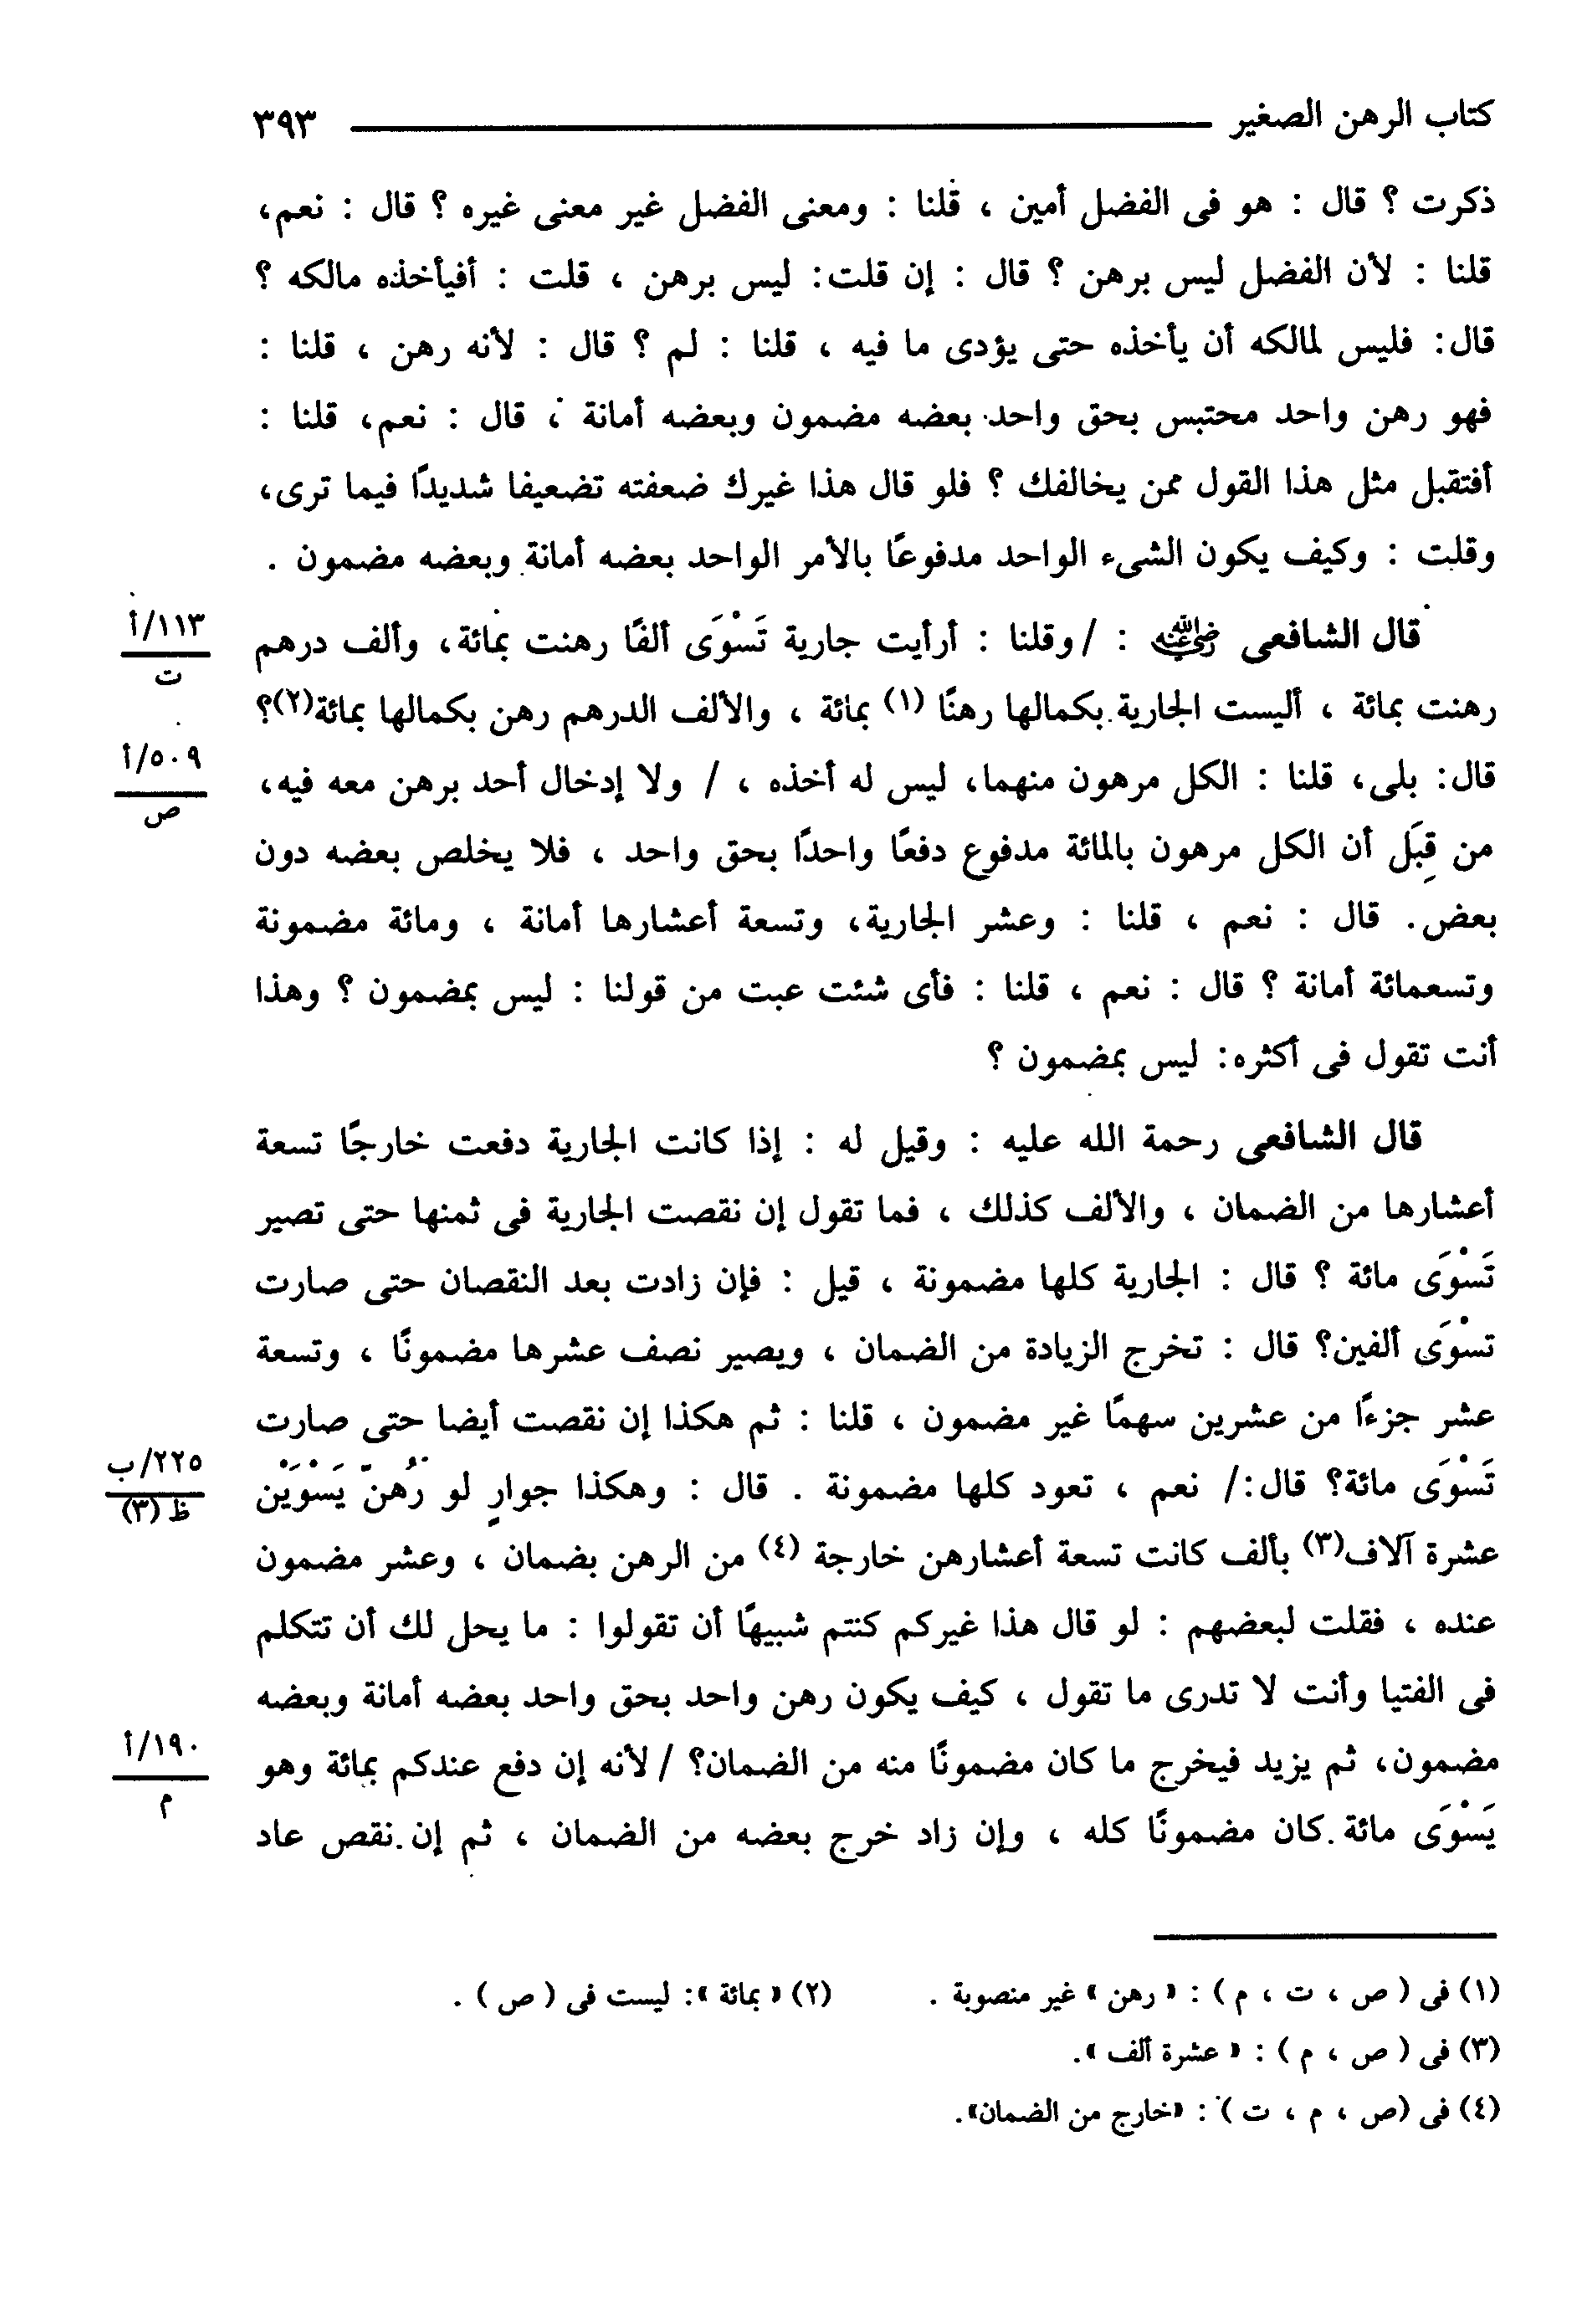 كتاب الرهن الصغير ــــــــــــــــــــــــــــــــــــــ ٣٩٣
ذكرت ؟ قال : هو فى الفضل أمين ، قلنا : ومعنى الفضل غير معنى غيره ؟ قال : نعم،
قلنا : لأن الفضل ليس برهن ؟ قال : إن قلت: ليس برهن ، قلت : أفيأخذه مالكه ؟
قال: فليس لمالكه أن يأخذه حتى يؤدى ما فيه ، قلنا : لم ؟ قال : لأنه رهن ، قلنا :
فهو رهن واحد محتبس بحق واحد بعضه مضمون وبعضه أمانة ، قال : نعم، قلنا :
أفتقبل مثل هذا القول ممن يخالفك ؟ فلو قال هذا غيرك ضعفته تضعيفا شديدًا فيما ترى،
وقلت : وكيف يكون الشىء الواحد مدفوعًا بالأمر الواحد بعضه أمانة وبعضه مضمون .
قال الشافعى رضي الله عنه : / وقلنا : أرأيت جارية تَسْوَى ألفًا رهنت بمائة، وألف درهم
١١٣/أ
ت
رهنت بمائة ، أليست الجارية بكمالها رهنًا (١) بمائة ، والألف الدرهم رهن بكمالها بمائة(٢)؟
قال: بلى، قلنا : الكل مرهون منهما، ليس له أخذه ، / ولا إدخال أحد برهن معه فيه،
٥٠٩/أ
ص
من قِبَل أن الكل مرهون بالمائة مدفوع دفعًا واحدًا بحق واحد ، فلا يخلص بعضه دون
بعض. قال : نعم ، قلنا : وعشر الجارية، وتسعة أعشارها أمانة ، ومائة مضمونة
وتسعمائة أمانة ؟ قال : نعم ، قلنا : فأى شئت عبت من قولنا : ليس بمضمون ؟ وهذا
أنت تقول فى أكثره: ليس بمضمون ؟
قال الشافعى رحمة الله عليه : وقيل له : إذا كانت الجارية دفعت خارجًا تسعة
أعشارها من الضمان ، والألف كذلك ، فما تقول إن نقصت الجارية فى ثمنها حتى تصير
تَسْوَى مائة ؟ قال : الجارية كلها مضمونة ، قيل : فإن زادت بعد النقصان حتى صارت
تسْوَى ألفين؟ قال : تخرج الزيادة من الضمان ، ويصير نصف عشرها مضمونًا ، وتسعة
عشر جزءًا من عشرين سهمًا غير مضمون ، قلنا : ثم هكذا إن نقصت أيضا حتى صارت
تَسْوَى مائة؟ قال:/ نعم ، تعود كلها مضمونة . قال : وهكذا جوارٍ لو رُهنّ يَسْوَيْن
٢٢٥/ب
ظ (٣)
عشرة آلاف(٣) بألف كانت تسعة أعشارهن خارجة (٤) من الرهن بضمان ، وعشر مضمون
عنده ، فقلت لبعضهم : لو قال هذا غيركم كنتم شبيهًا أن تقولوا : ما يحل لك أن تتكلم
فى الفتيا وأنت لا تدرى ما تقول ، كيف يكون رهن واحد بحق واحد بعضه أمانة وبعضه
مضمون، ثم يزيد فيخرج ما كان مضمونًا منه من الضمان؟ / لأنه إن دفع عندكم بمائة وهو
١٩٠/أ
م
يَسْوَى مائة كان مضمونًا كله ، وإن زاد خرج بعضه من الضمان ، ثم إن نقص عاد
(١) فى ( ص ، ت ، م ) : « رهن » غير منصوبة . (٢) « بمائة »: ليست فى ( ص ) .
(٣) فى ( ص ، م ) : « عشرة ألف ».
(٤) فى (ص ، م ، ت ) : «خارج من الضمان».